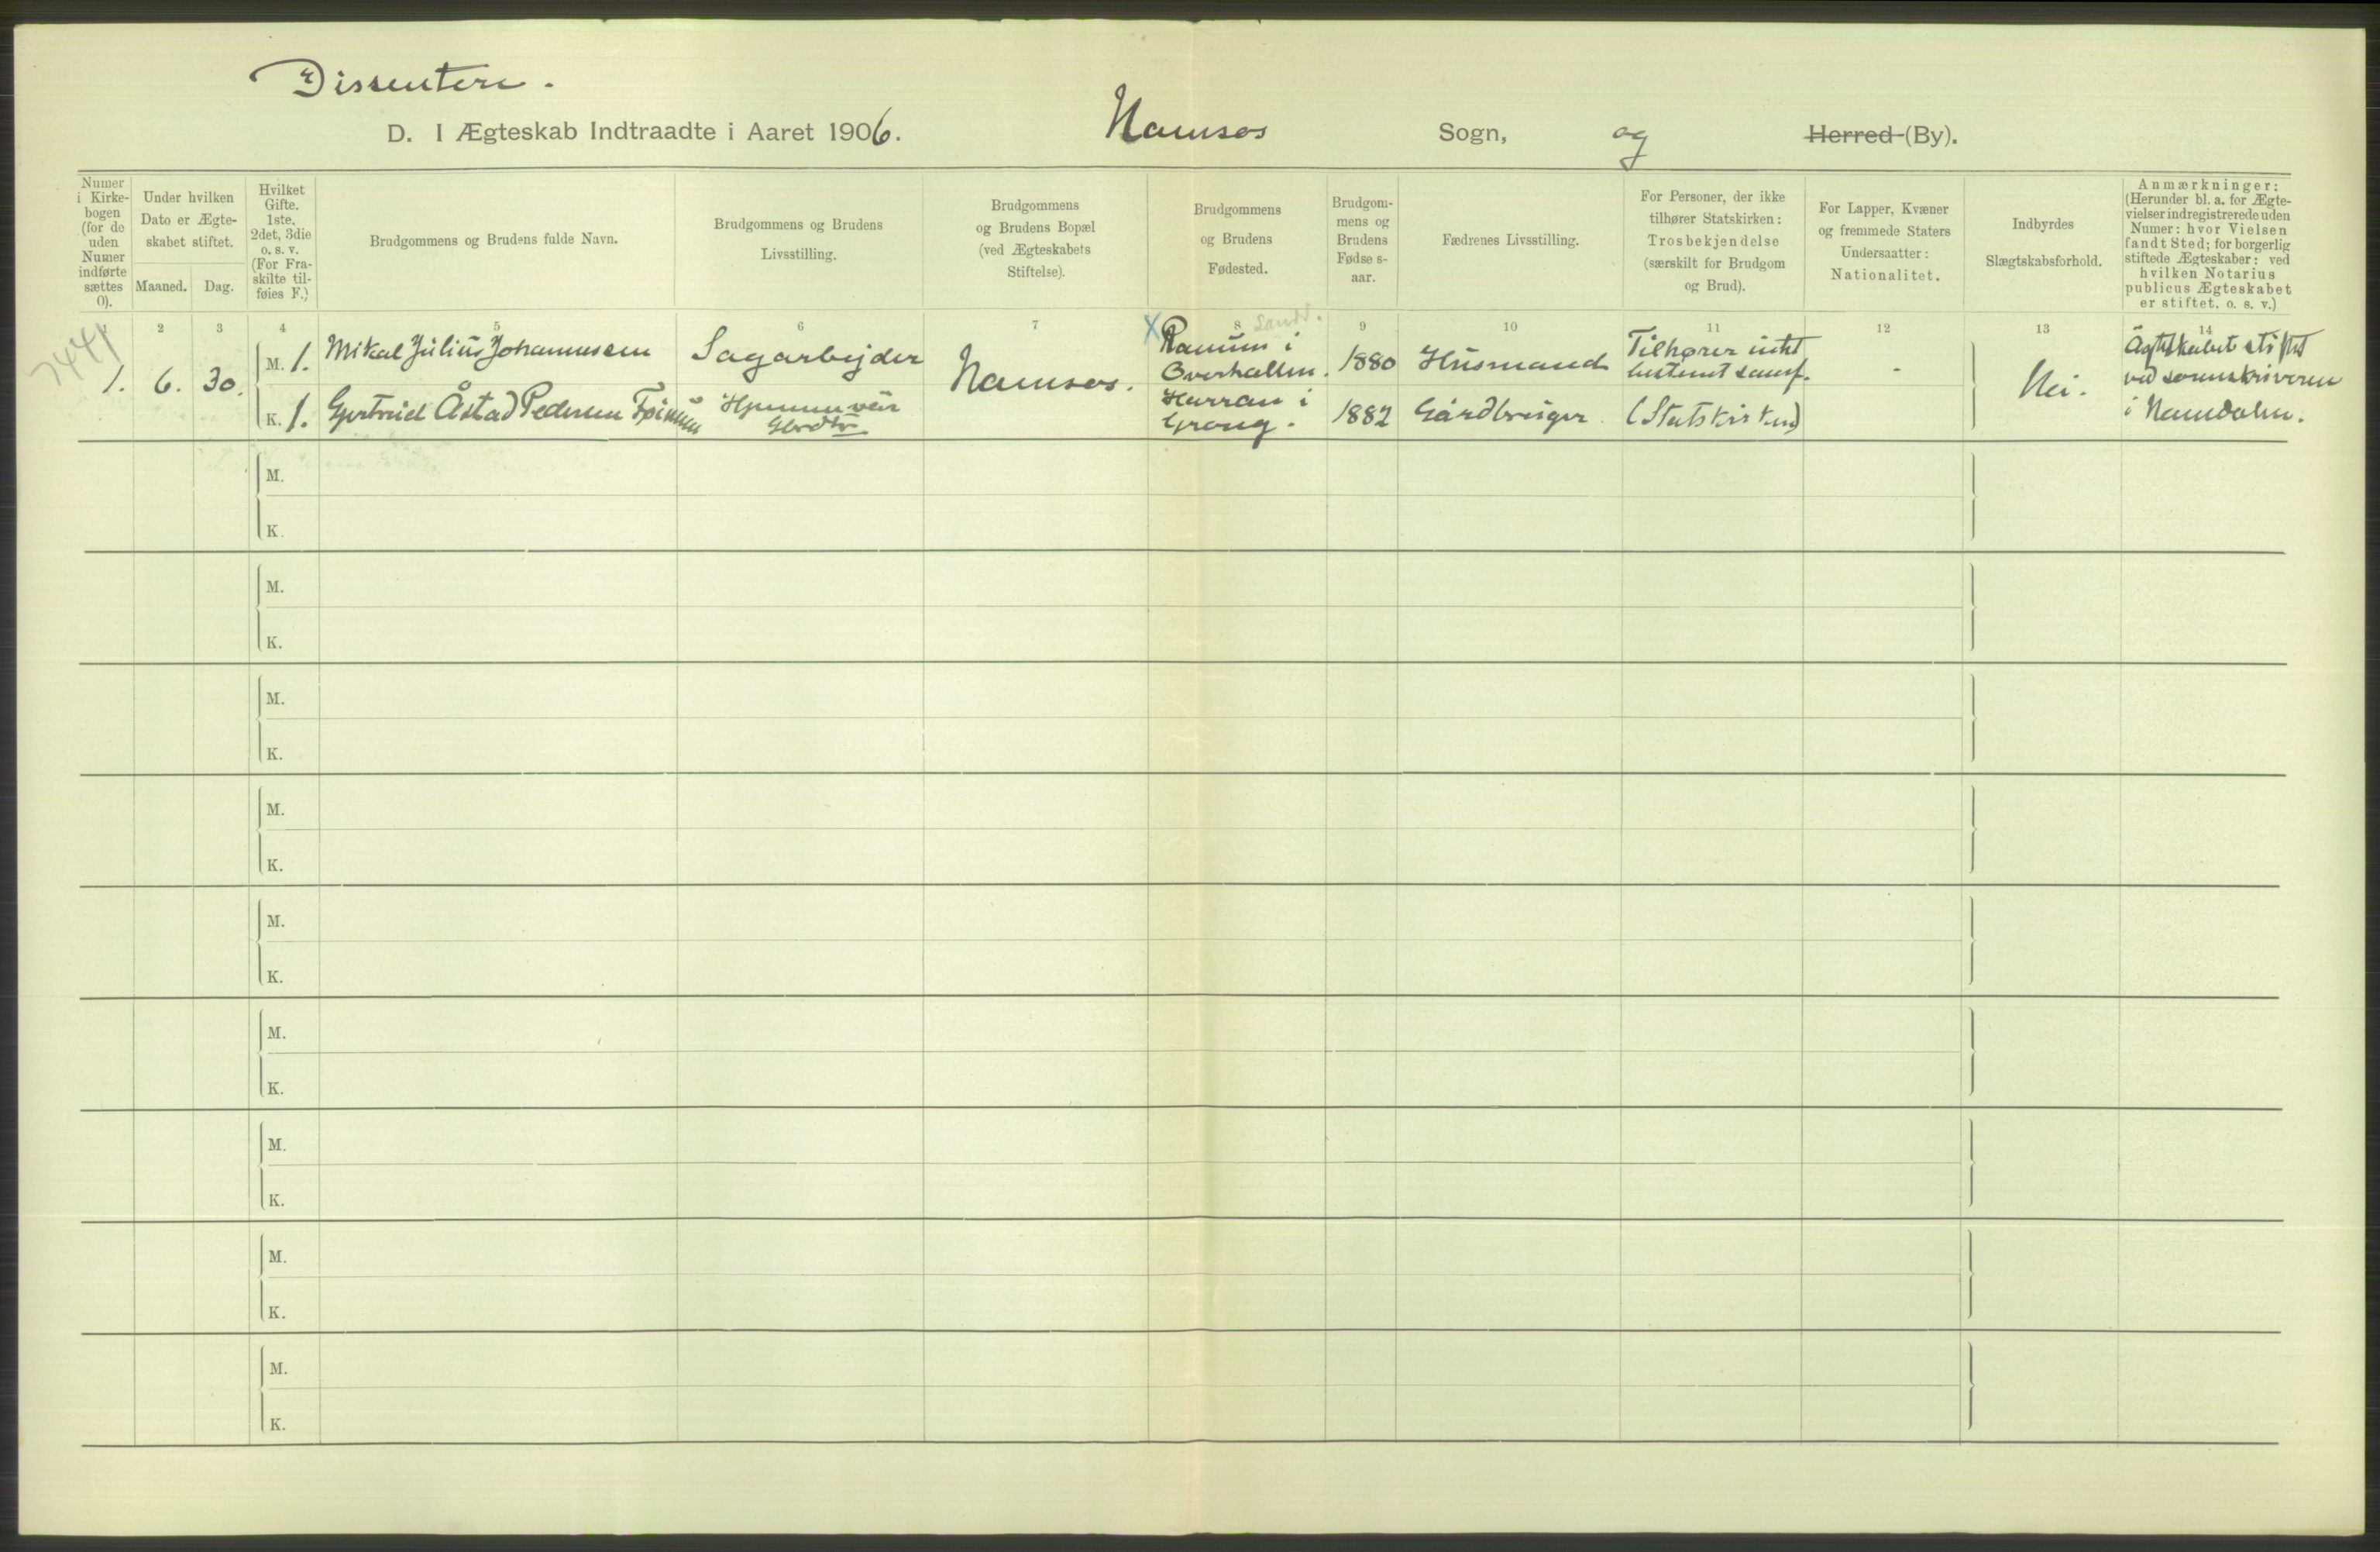 Dissentere.
D. I Ægteskab Indtraadte i Aaret 1906. Namsos Sogn, og Herred (By).
Numer i Kirke-bogen (for de uden Numer indførte sættes 0).
Under hvilken Dato er Ægte-skabet stiftet.
Maaned. Dag.
Hvilket Gifte. 1ste. 2det, 3die o. s. v. (For Fra-skilte til-føies F.)
Brudgommens og Brudens fulde Navn.
Brudgommens og Brudens Livsstilling.
Brudgommens og Brudens Bopæl (ved Ægteskabets Stiftelse).
Brudgommens og Brudens Fødested.
Brudgom-mens og Brudens Fødse s-aar.
Fædrenes Livsstilling.
For Personer, der ikke tilhører Statskirken: Trosbekjendelse (særskilt for Brudgom og Brud).
For Lapper, Kvæner og fremmede Staters Undersaatter: Nationalitet.
Indbyrdes Slægtskabsforhold.
Anmærkninger: (Herunder bl. a. for Ægte-vielser indregistrerede uden Numer: hvor Vielsen fandt Sted; for borgerlig stiftede Ægteskaber: ved hvilken Notarius publicus Ægteskabet er stiftet. o. s. v.)
1 2 3 4 5 6 7 8 9 10 11 12 13 14
7441
1. 6. 30.
M. 1. Mikal Julius Johannessen Sagarbejder Namsos. X Ranum i Overhallen. 1880 Husmand Tilhører intet bestemt samf. - Nei. Ägteskabet stiftet ved sorenskriveren i Namdalen.
K. 1. Gjertrud Åstad Pedersen Hjemmevær Gbrdtr Harran i Grong. 1882 Gårdbruger (Statskirken)
M.
K.
M.
K.
M.
K.
M.
K.
M.
K.
M.
K.
M.
K.
M.
K.
M.
K.